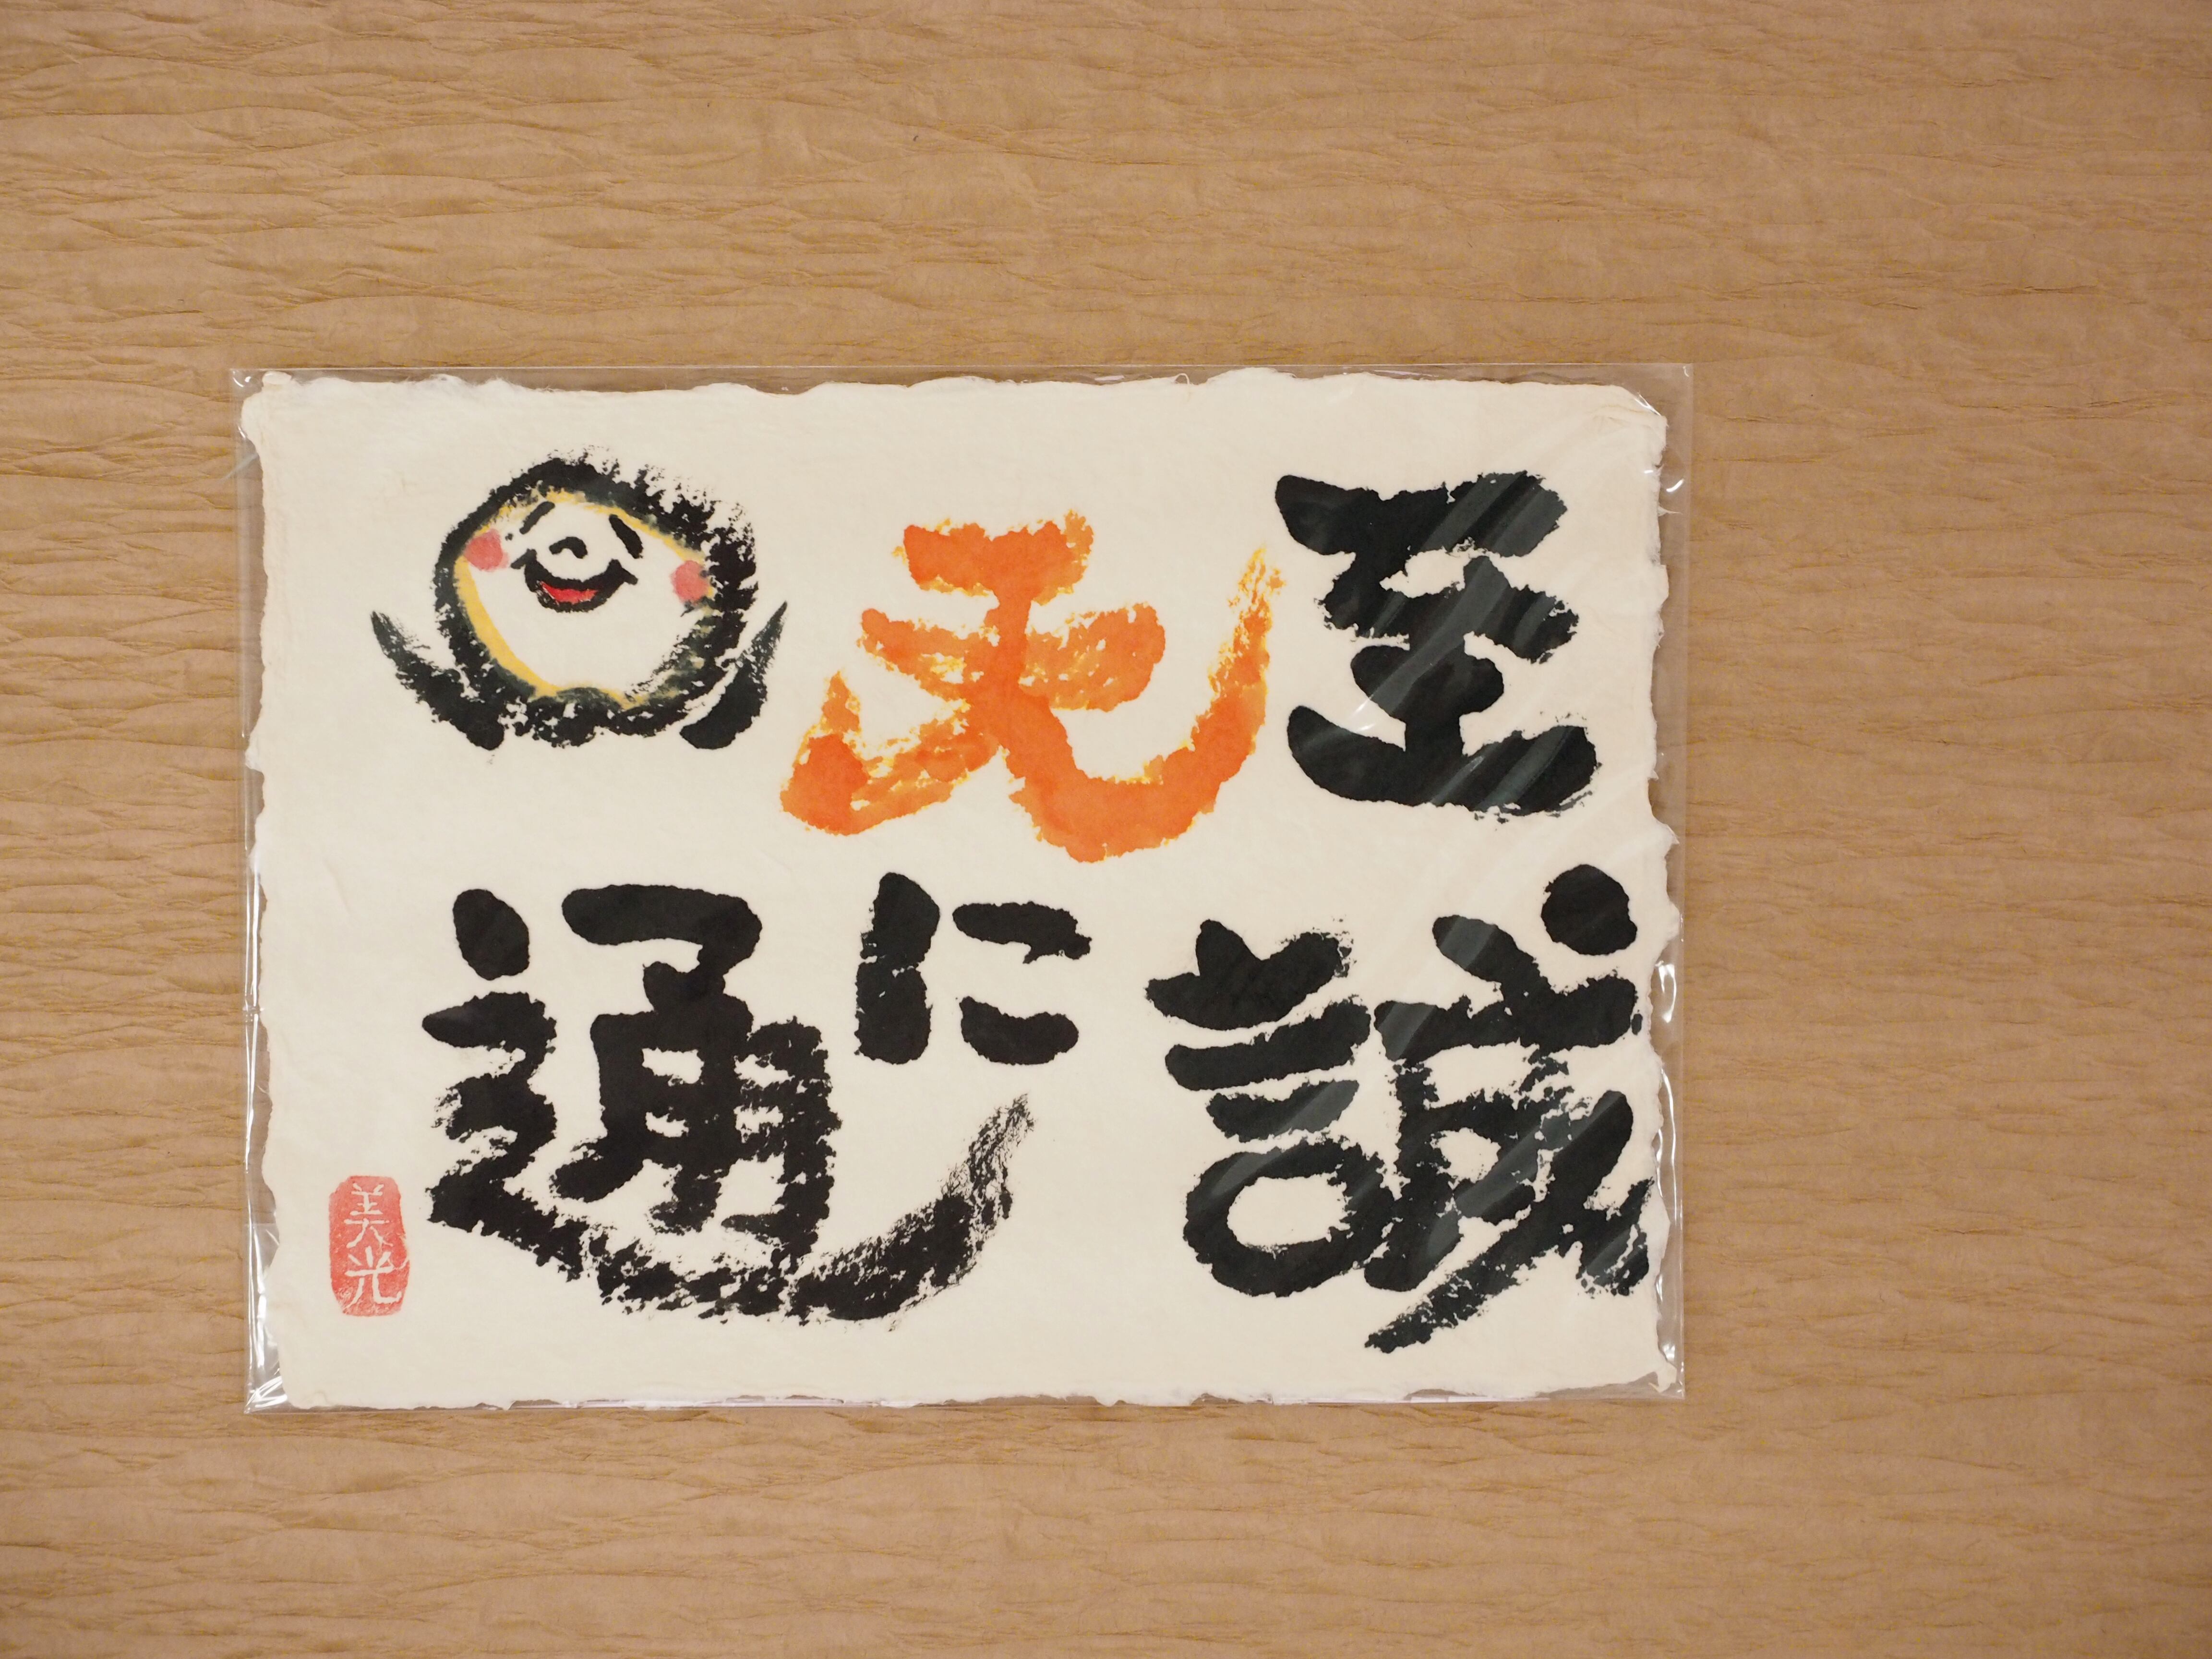 至誠
天に
通
美光